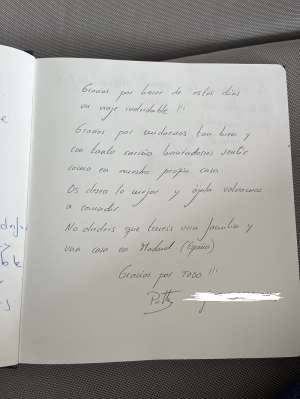 Gracias por hacer de estos días
un viaje inolvidable !!!
Gracias por cuidarnos tan bien y
con tanto cariño haciéndonos sentir
como en nuestra propia casa.
Os deseo lo mejor y ójala volvamos
a
No olvidéis que tenéis una familia y
una casa en Madrid (España)
Gracias por TODO !!!